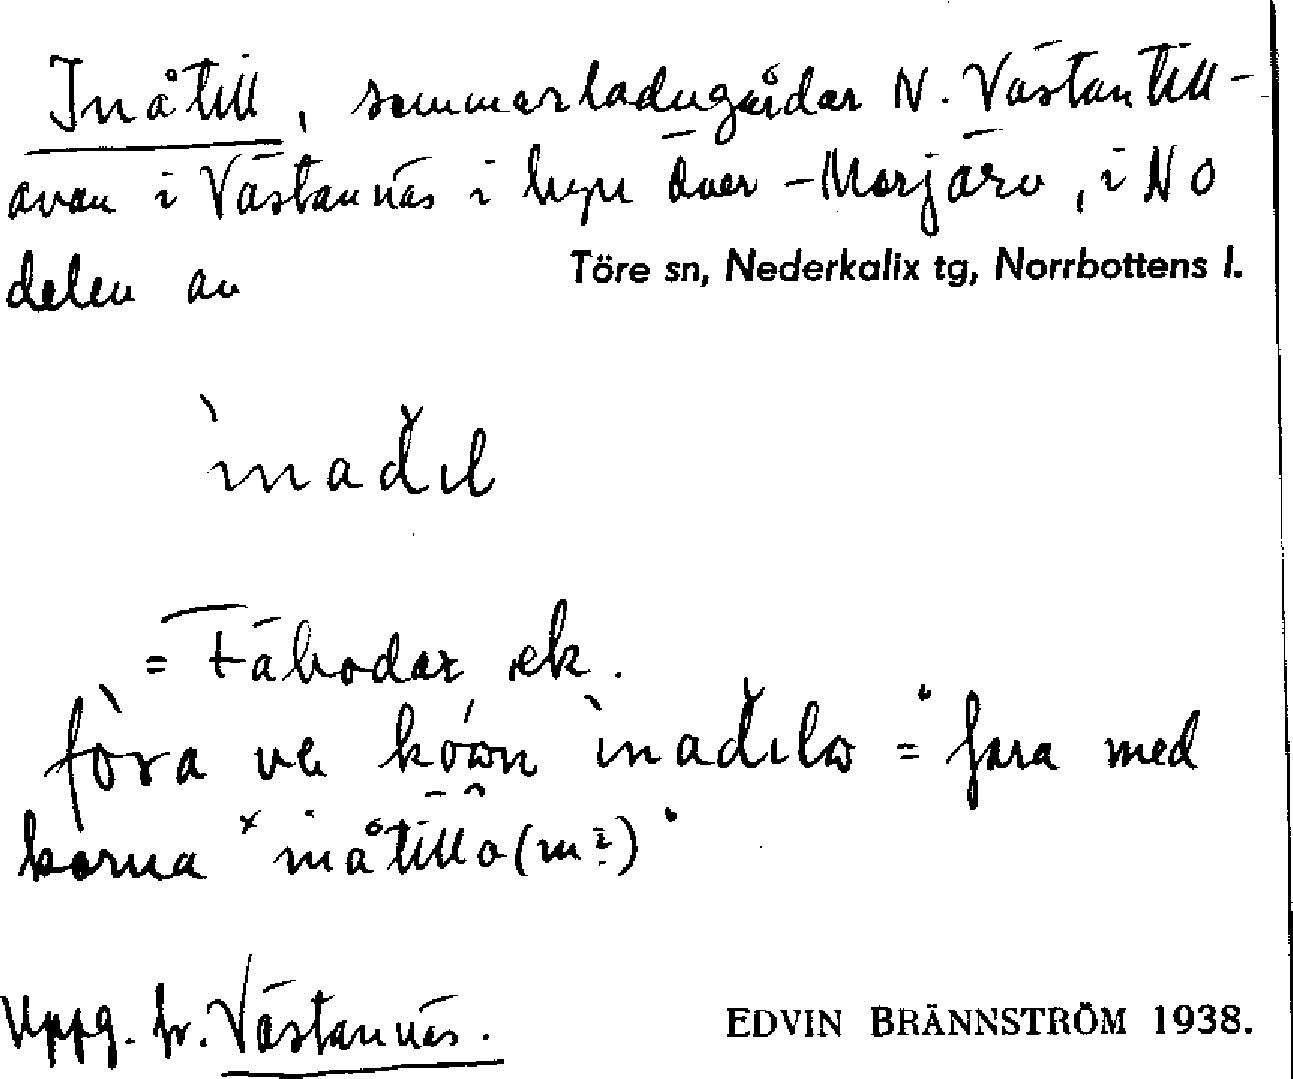 Inåtill, sommarladugårdar N. Västantill-
avan i Västannäs i byn Över-Morjärv, i NO
delen av Töre sn, Nederkalix tg, Norrbottens l.
= Fäbodar ek.
= "fara med
korna inåtill
Uppg. fr. Västannäs.
EDVIN BRÄNNSTRÖM 1938.